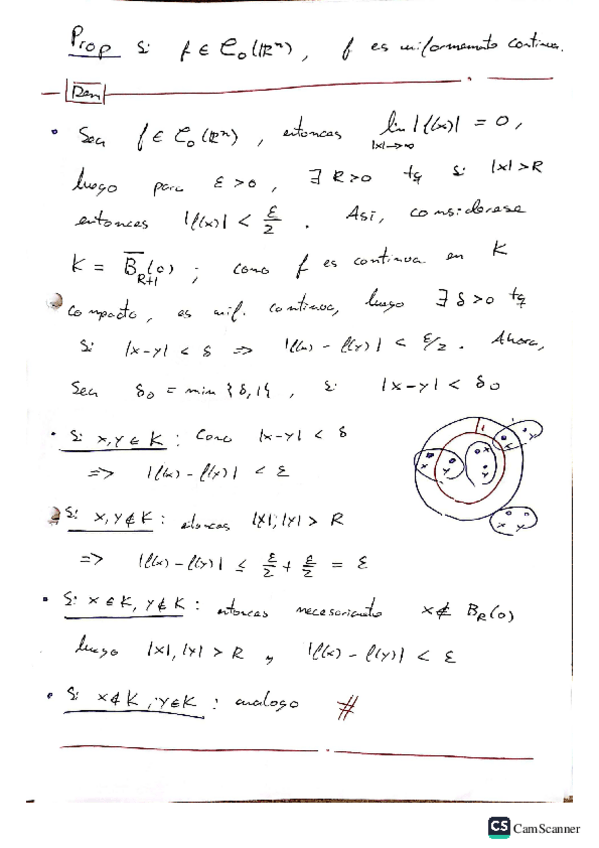 Prop Si f ∈ C₀(ℝⁿ), f es uniformemente continua.
Dem
• Sea f ∈ C₀(ℝⁿ), entonces lim |f(x)| = 0,
|x|→∞
luego para ε > 0, ∃ R > 0 tq si |x| > R
entonces |f(x)| < ε/2. Así, considerese
K = B̅_{R+1}(0); como f es continua en K
compacto, es unif. continua, luego ∃ δ > 0 tq
Si |x-y| < δ ⇒ |f(x) - f(y)| < ε/2. Ahora,
Sea δ₀ = min {δ,1}, si |x-y| < δ₀
• Si x,y ∈ K: Como |x-y| < δ
⇒ |f(x) - f(y)| < ε
• Si x,y ∉ K: entonces |x|,|y| > R
⇒ |f(x) - f(y)| ≤ ε/2 + ε/2 = ε
• Si x ∈ K, y ∉ K: entonces necesariamente x ∉ B_R(0)
luego |x|,|y| > R y |f(x) - f(y)| < ε
• Si x ∉ K, y ∈ K: analogo #
1
x y
x y
x
y
x y
CS CamScanner